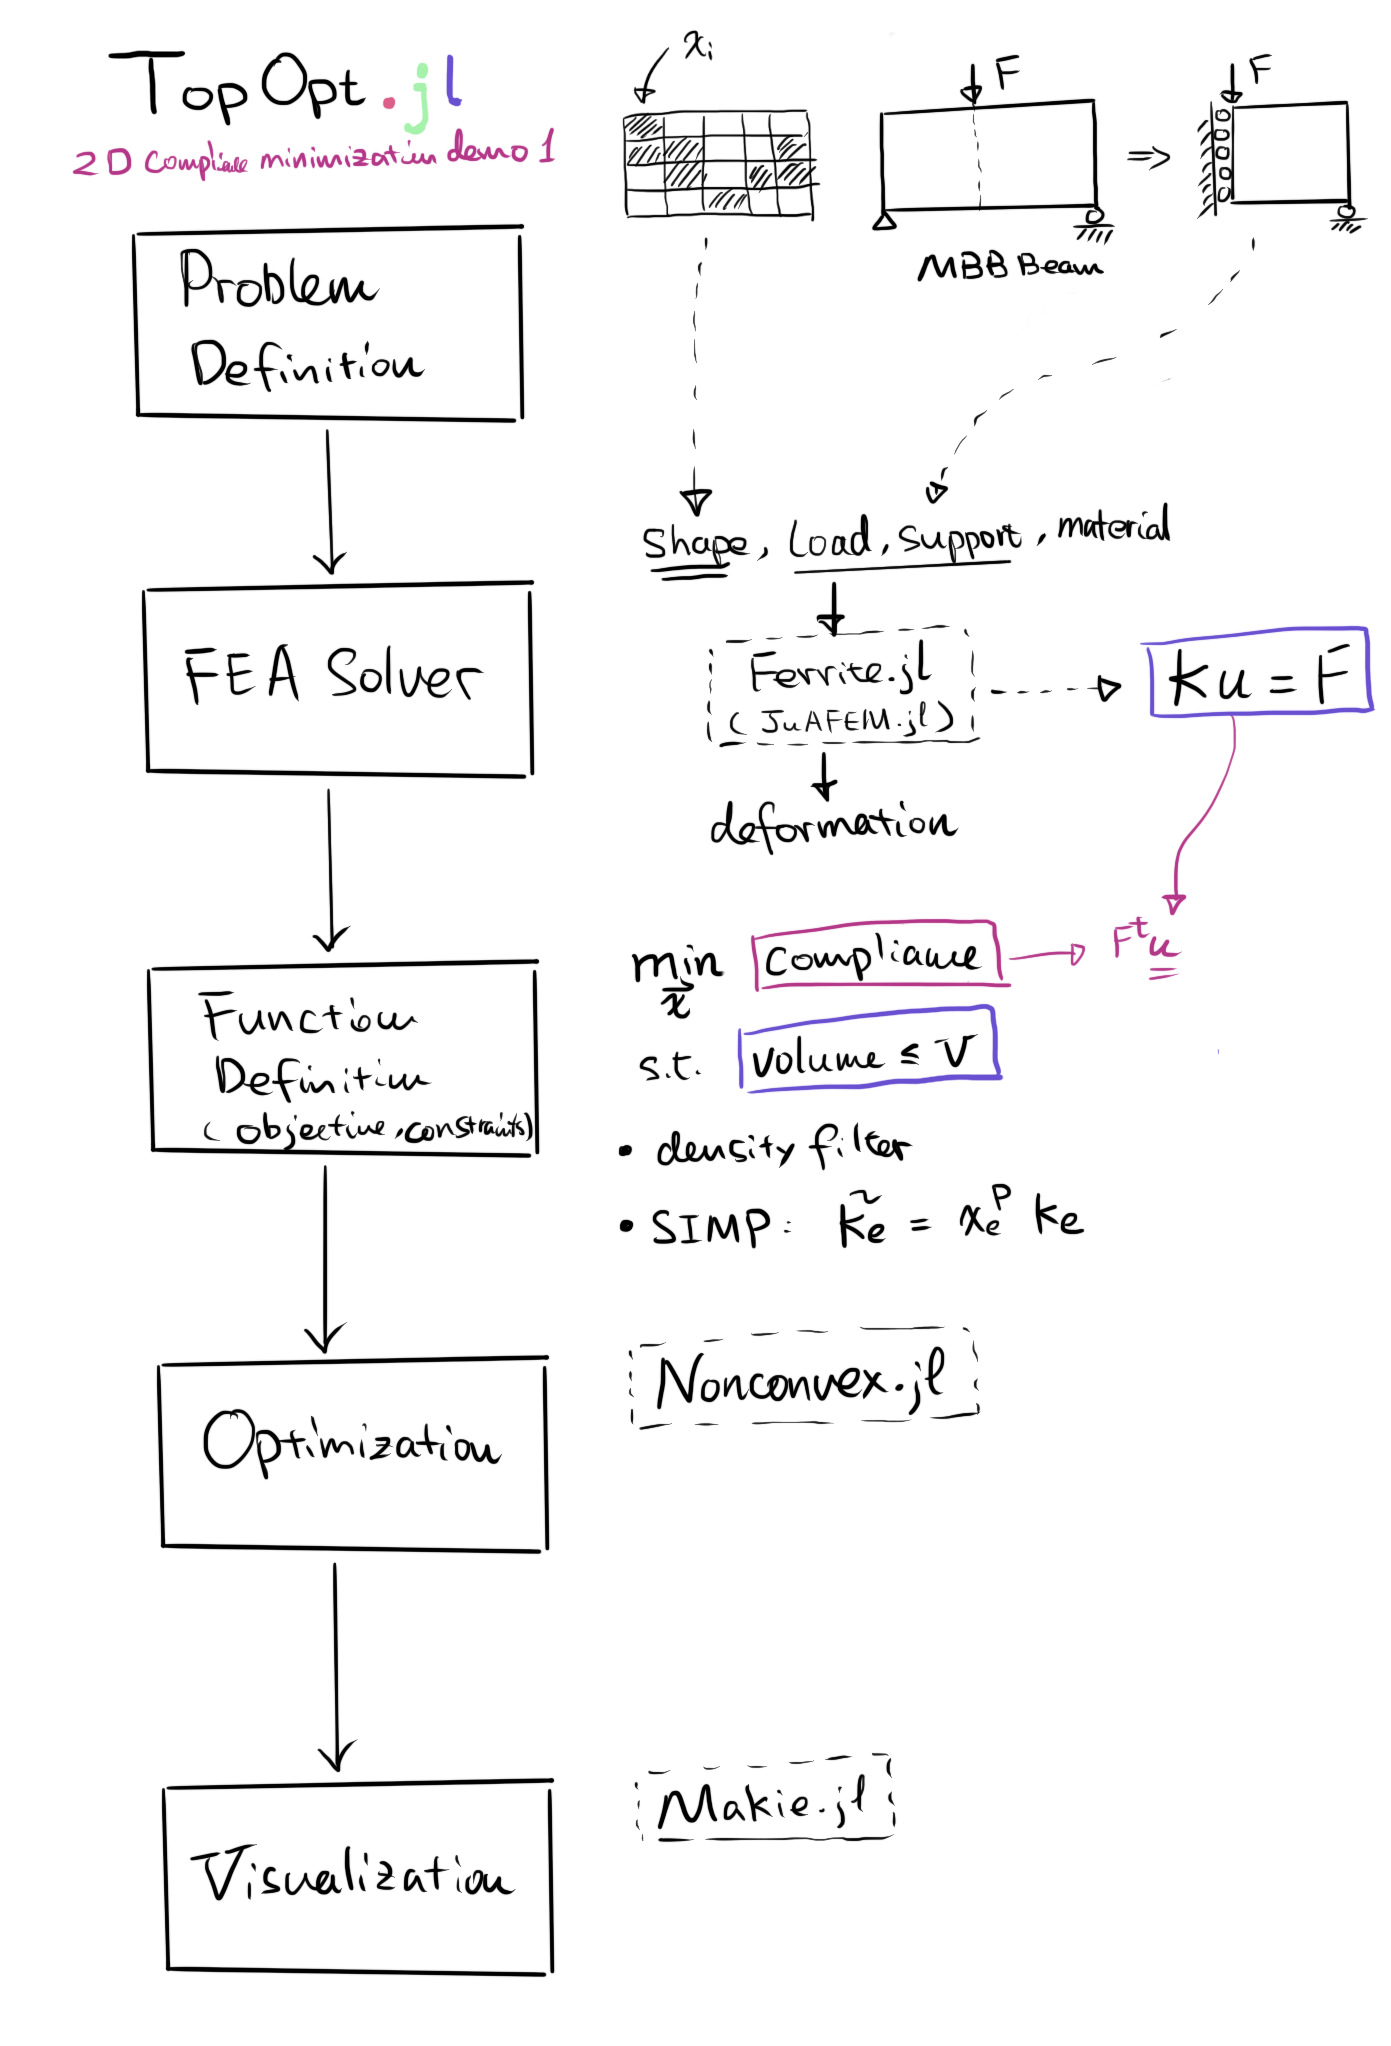 TopOpt.jl
2D Compliance minimization demo 1
xi
F
F
MBB Beam
Problem
Definition
Shape, Load, Support, material
FEA Solver
Ferrite.jl
(JuAFEM.jl)
Ku = F
deformation
Function
Definition
(objective, constraints)
min Compliance
x
Fᵗu
s.t. volume ≤ V
• density filter
• SIMP: k̃e = xe^P ke
Optimization
Nonconvex.jl
Visualization
Makie.jl